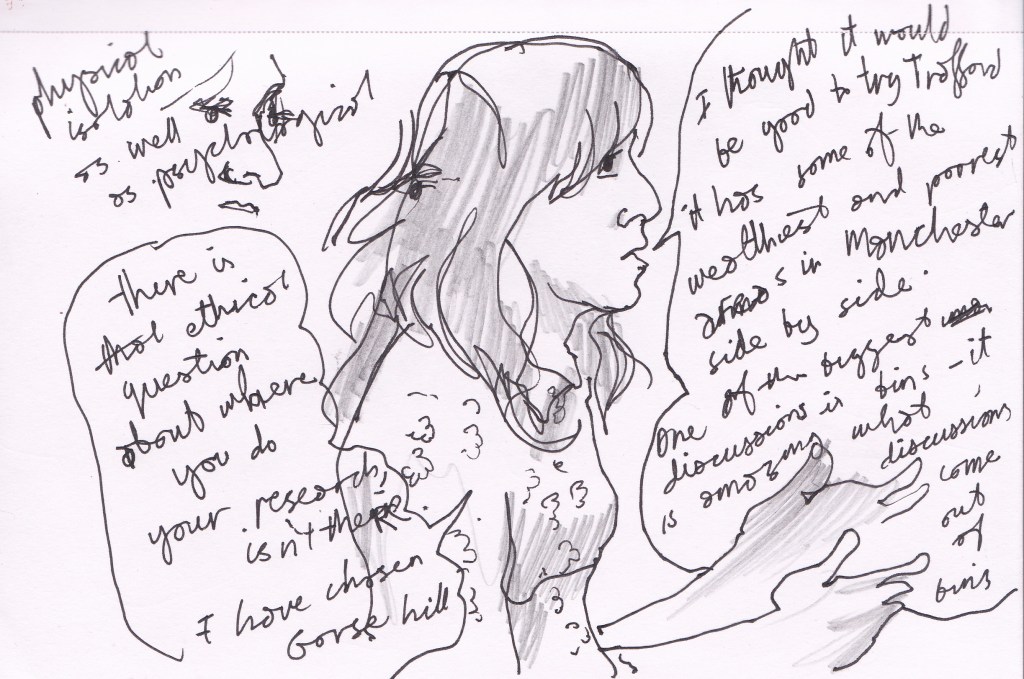 physical
isolation
as well as
as psychological
there is
that ethical
question
about where
you do
your research,
isn't there
I have chosen
Gorse hill
I thought it would
be good to try Trafford
it has some of the
wealthiest and poorest
areas in Manchester
side by side.
One of the biggest
discussions is bins - it
is amazing what
discussions
come
out
of
bins